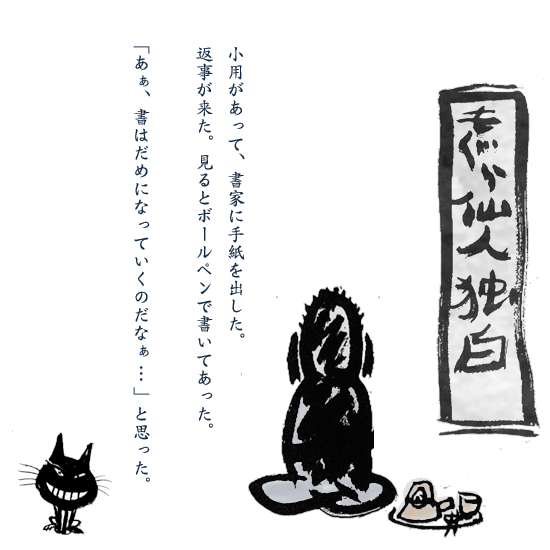 仙人独白
小用があって、書家に手紙を出した。
返事が来た。見るとボールペンで書いてあった。
「あぁ、書はだめになっていくのだなぁ…」と思った。